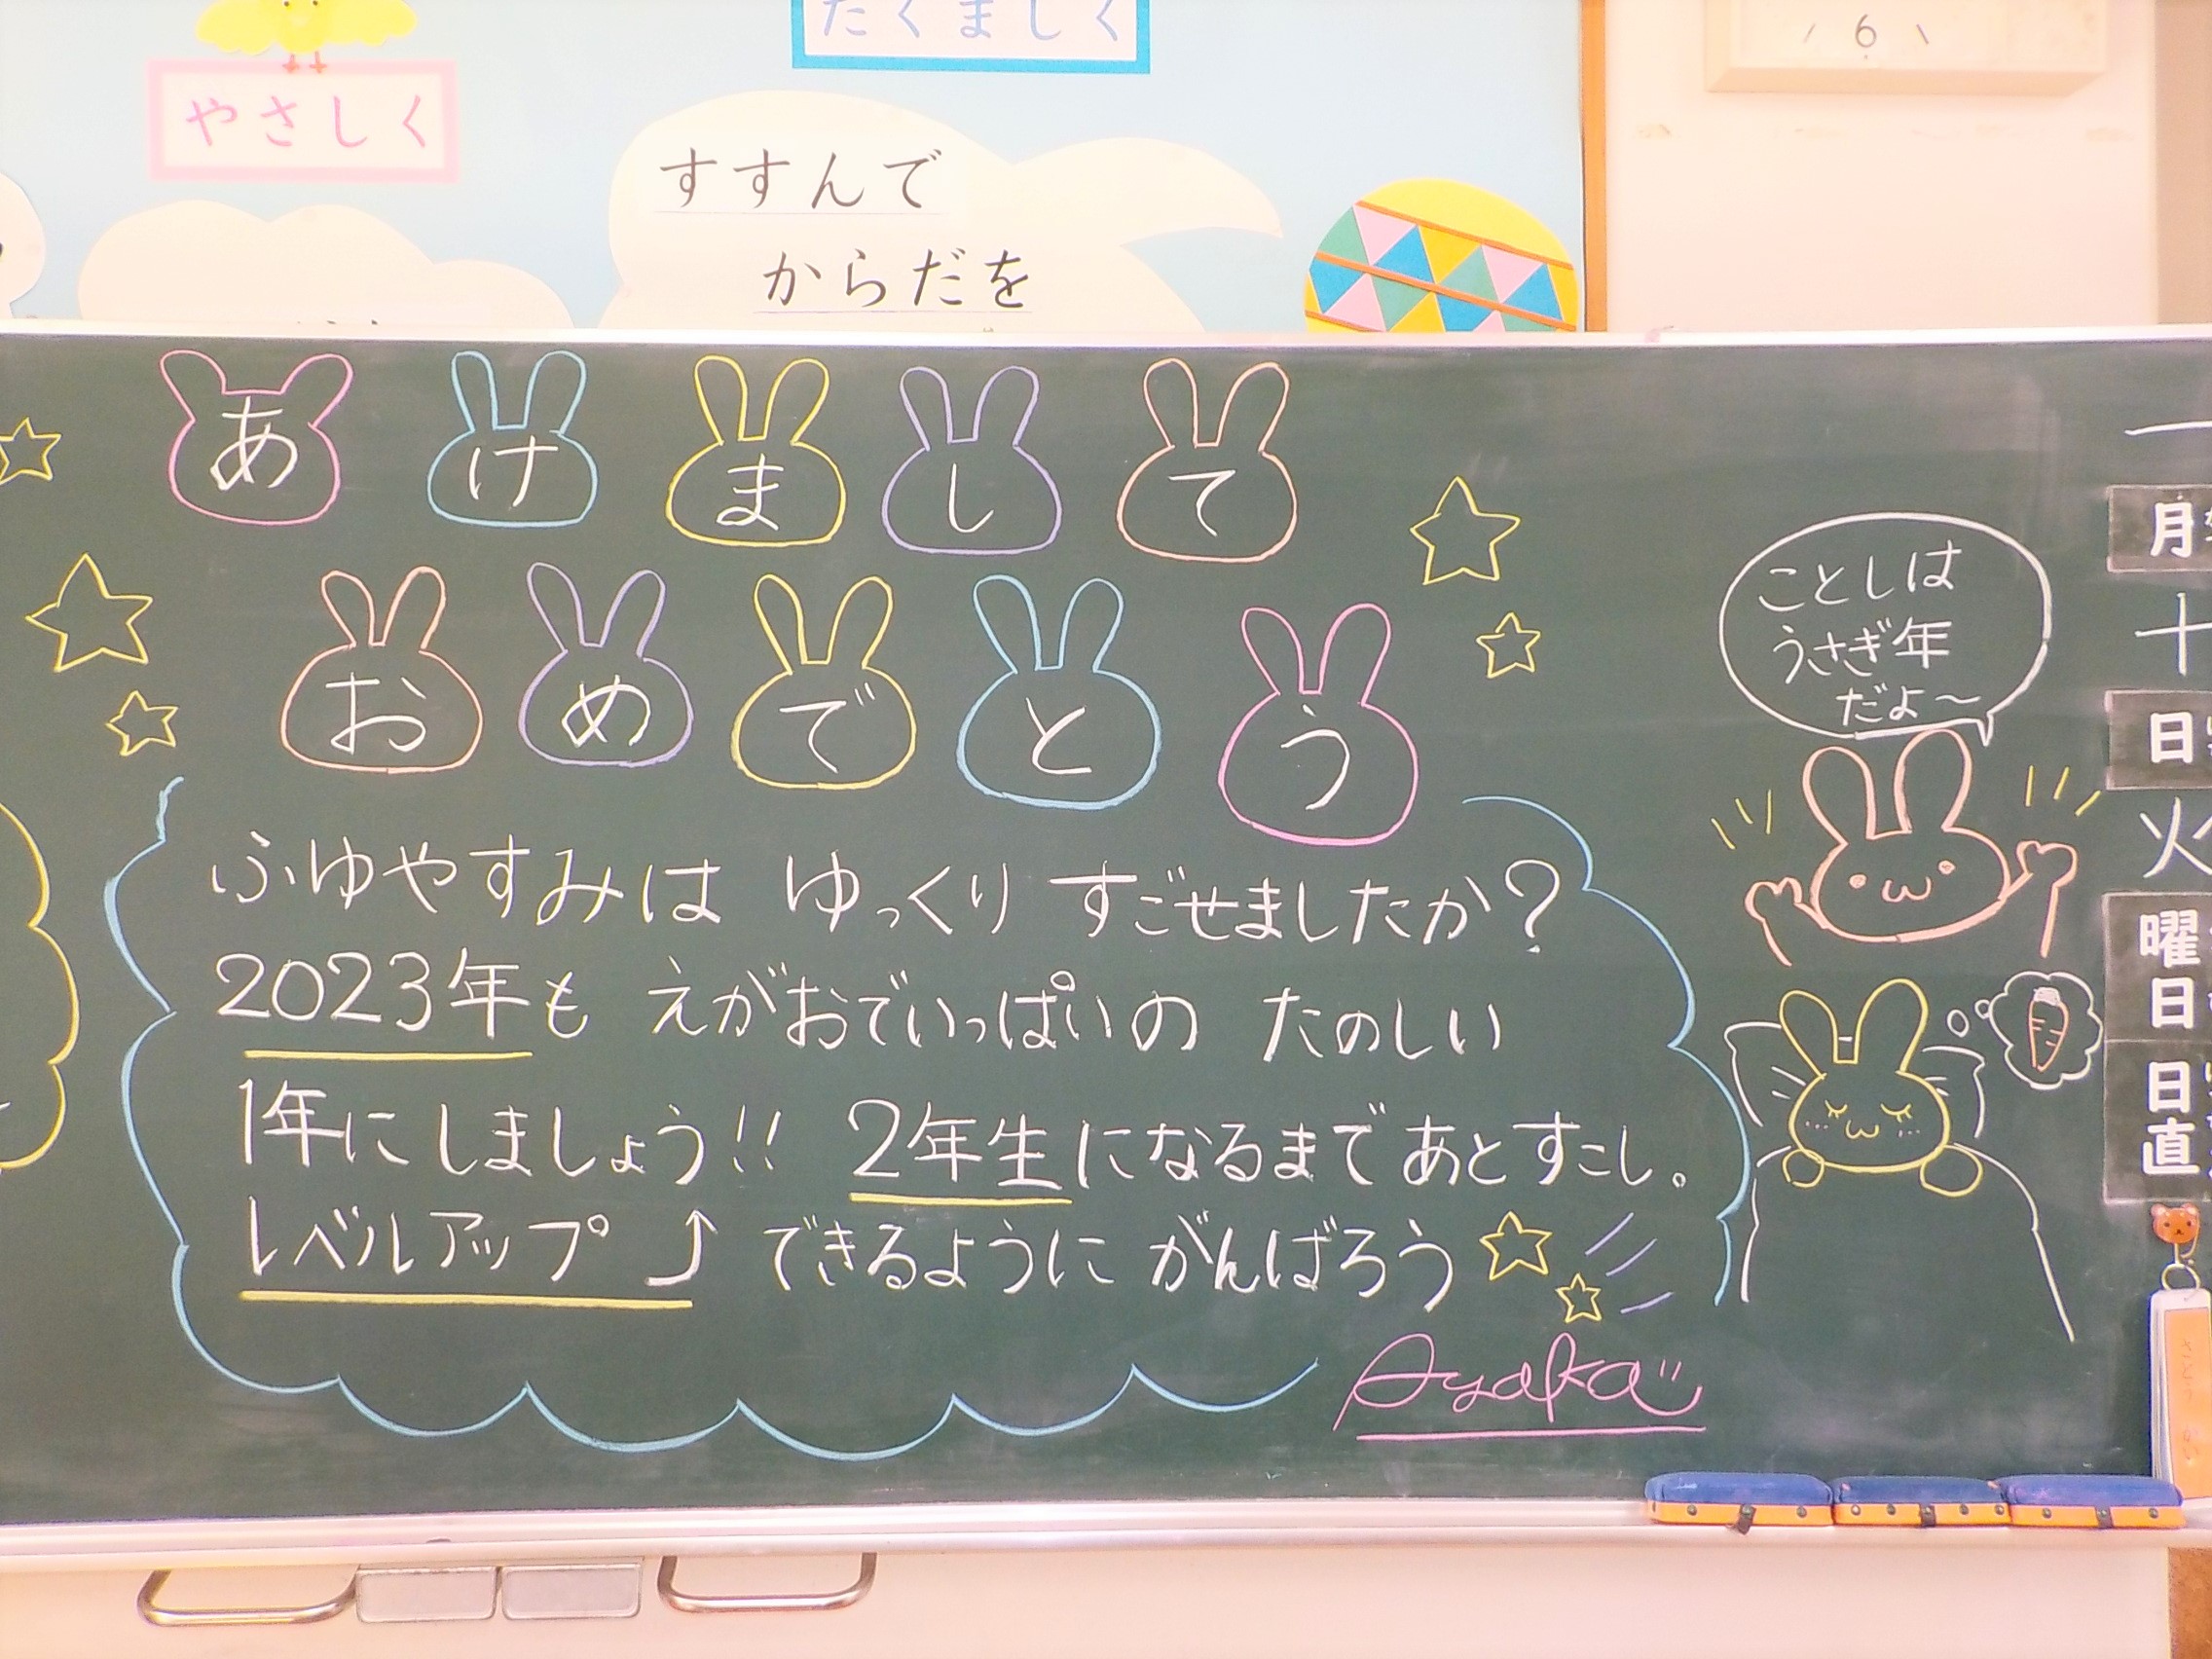 たくましく
6
やさしく
すすんで
からだを
あけまして
おめでとう
ふゆやすみは ゆっくり すごせましたか?
2023年も えがおでいっぱいの たのしい
1年にしましょう!! 2年生になるまで あと すこし。
レベルアップ⤴ できるように がんばろう
Ayaka
ことしは
うさぎ年
だよ〜
一
月
十
日
火
曜
日
日
直